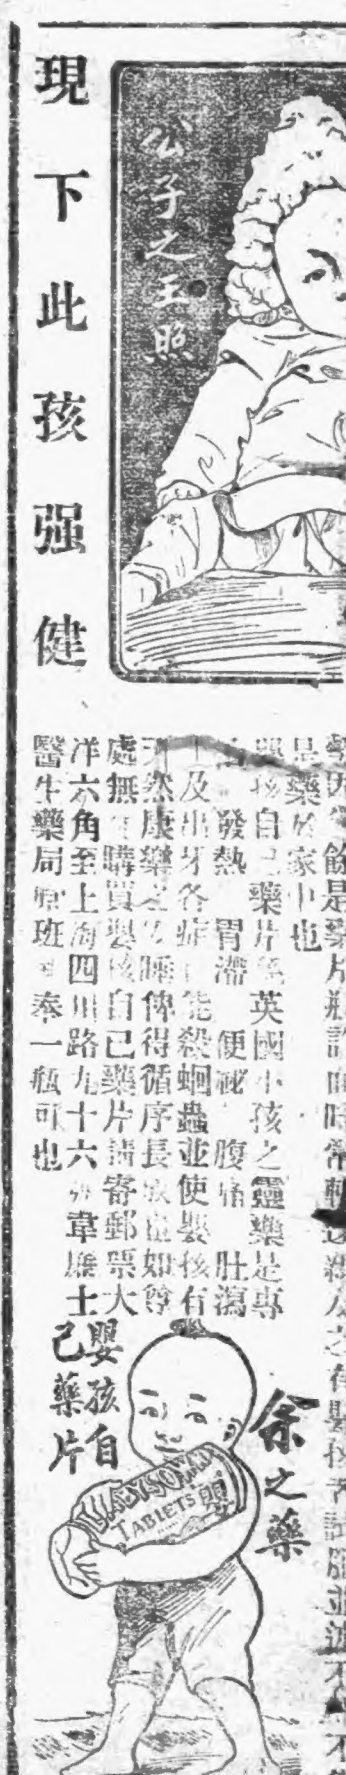 現下此孩强健
公子之玉照
是藥於家中也
嬰孩自己藥片係英國小孩之靈藥是專
發熱 胃滯 便祕 腹痛 肚瀉
及出牙各症 能殺蛔蟲並使嬰孩有
天然康樂之 睡俾得循序長成也如尊
處無 購買嬰孩自己藥片請寄郵票大
洋六角至上海四川路九十六號韋廉士
醫生藥局原班 奉一瓶可也
余之藥
BABY'S OWN
TABLETS
嬰孩自
己藥片